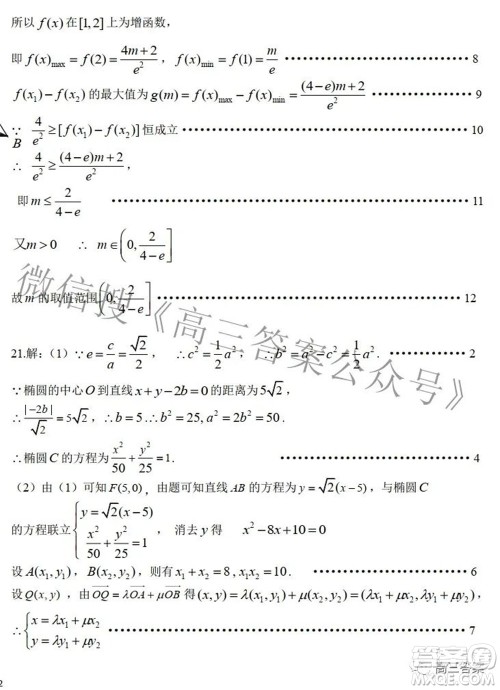 所以 f(x) 在 [1,2] 上为增函数，
即 f(x)max = f(2) = (4m+2)/e²，f(x)min = f(1) = m/e ⋯⋯ 8
f(x₁) − f(x₂) 的最大值为 g(m) = f(x)max − f(x)min = ((4−e)m+2)/e² ⋯⋯ 9
∵ 4/e² ≥ [f(x₁) − f(x₂)] 恒成立 ⋯⋯ 10
B
∴ 4/e² ≥ ((4−e)m+2)/e²，
即 m ≤ 2/(4−e) ⋯⋯ 11
又m > 0 ∴ m ∈ (0, 2/(4−e)]
故 m 的取值范围 (0, 2/(4−e)] ⋯⋯ 12
21.解：（1）∵ e = c/a = √2/2， ∴ c² = 1/2 a²， ∴ b² = a² − c² = 1/2 a². ⋯⋯ 2
∵ 椭圆的中心 O 到直线 x + y − 2b = 0 的距离为 5√2，
∴ |−2b|/√2 = 5√2，∴ b = 5. ∴ b² = 25, a² = 2b² = 50.
∴ 椭圆 C 的方程为 x²/50 + y²/25 = 1. ⋯⋯ 4
（2）由（1）可知 F(5,0)，由题可知直线 AB 的方程为 y = √2(x−5)，与椭圆 C
的方程联立 { y = √2(x−5) x²/50 + y²/25 = 1 ， 消去 y 得 x² − 8x + 10 = 0
设 A(x₁, y₁)，B(x₂, y₂)，则有 x₁ + x₂ = 8, x₁x₂ = 10. ⋯⋯ 6
设 Q(x, y)，由 OQ = λOA + μOB 得 (x, y) = λ(x₁, y₁) + μ(x₂, y₂) = (λx₁ + μx₂, λy₁ + μy₂),
∴ { x = λx₁ + μx₂ y = λy₁ + μy₂ ⋯⋯ 7
微信搜《高三答案公众号》
高三答案
2